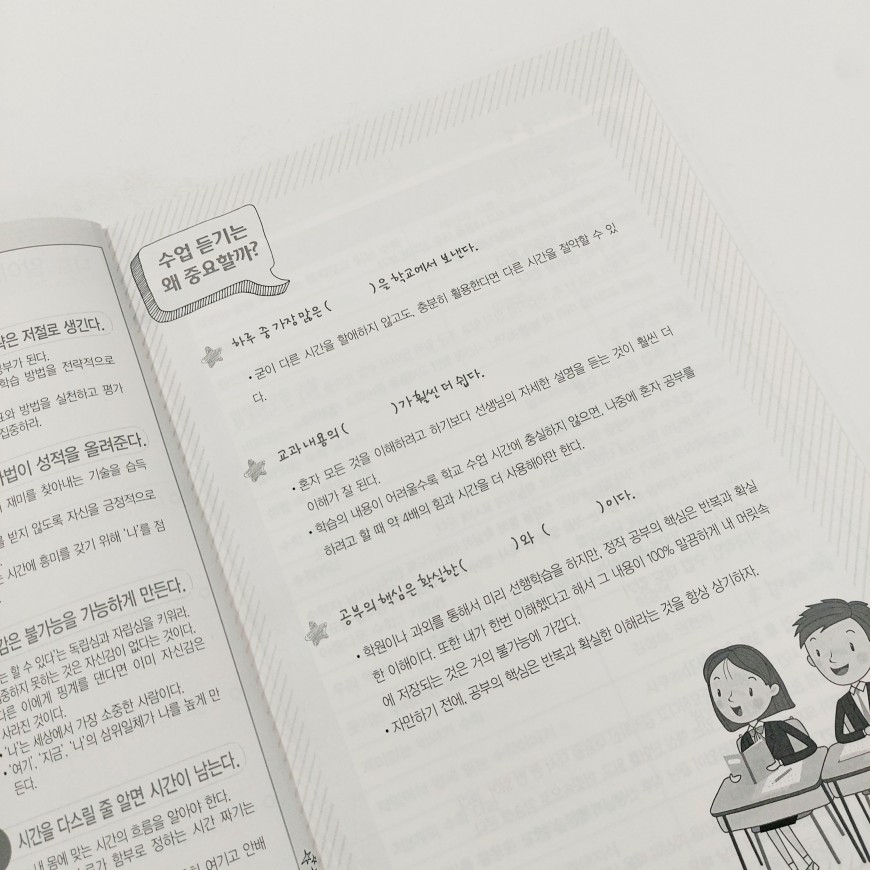 약은 저절로 생긴다.
공부가 된다.
학습 방법을 전략적으로
표와 방법을 실천하고 평가
집중하라.
마법이 성적을 올려준다.
재미를 찾아내는 기술을 습득
를 받지 않도록 자신을 긍정적으로
시간에 흥미를 갖기 위해 '나'를 점
감은 불가능을 가능하게 만든다.
는 할 수 있다'는 독립심과 자립심을 키워라.
중하지 못하는 것은 자신감이 없다는 것이다.
다른 이에게 핑계를 댄다면 이미 자신감은
사라진 것이다.
• '나'는 세상에서 가장 소중한 사람이다.
• '여기', '지금', '나'의 삼위일체가 나를 높게 만
든다.
시간을 다스릴 줄 알면 시간이 남는다.
내 몸에 맞는 시간의 흐름을 알아야 한다.
가 함부로 정하는 시간 짜기는
여기고 안배
수업 듣기는
왜 중요할까?
하루 중 가장 많은 ( )을 학교에서 보낸다.
• 굳이 다른 시간을 할애하지 않고도, 충분히 활용한다면 다른 시간을 절약할 수 있
다.
교과 내용의 ( )가 훨씬 더 쉽다.
• 혼자 모든 것을 이해하려고 하기보다 선생님의 자세한 설명을 듣는 것이 훨씬 더
이해가 잘 된다.
• 학습의 내용이 어려울수록 학교 수업 시간에 충실하지 않으면, 나중에 혼자 공부를
하려고 할 때 약 4배의 힘과 시간을 더 사용해야만 한다.
공부의 핵심은 확실한 ( )와 ( )이다.
• 학원이나 과외를 통해서 미리 선행학습을 하지만, 정작 공부의 핵심은 반복과 확실
한 이해이다. 또한 내가 한번 이해했다고 해서 그 내용이 100% 말끔하게 내 머릿속
에 저장되는 것은 거의 불가능에 가깝다.
• 자만하기 전에, 공부의 핵심은 반복과 확실한 이해라는 것을 항상 상기하자.